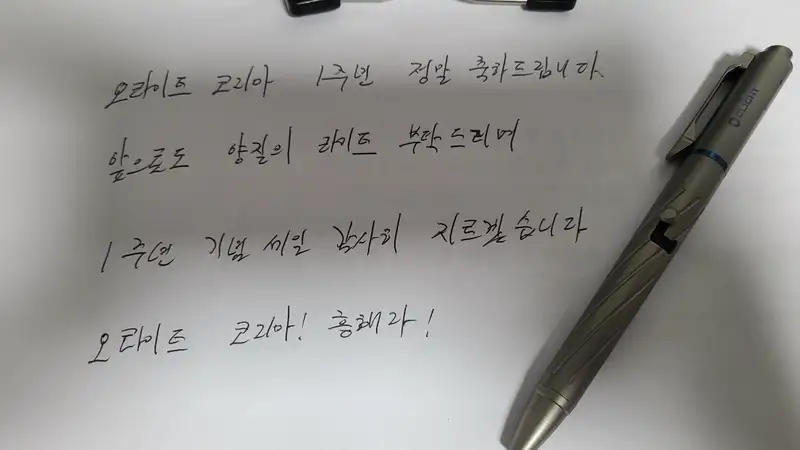 오라이트 코리아 1주년 정말 축하드립니다.
앞으로도 양질의 라이트 부탁드리며
1주년 기념 세일 감사히 지르겠습니다
오라이트 코리아! 흥해라!
OLIGHT